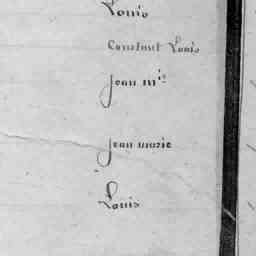 Louis
Constant Louis
jean mie
jean marie
Louis